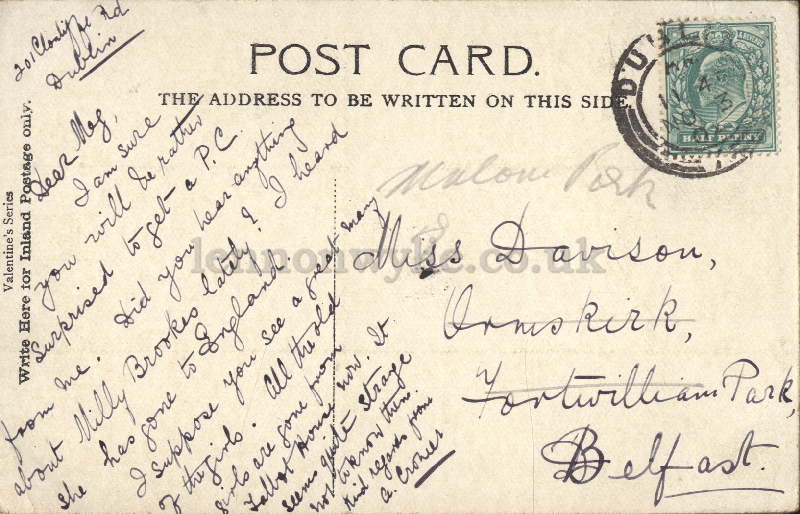 POST CARD.
THE ADDRESS TO BE WRITTEN ON THIS SIDE.
Valentine's Series
Write Here for Inland Postage only.
201 Rd
Dublin
Dear Meg,
I am sure
you will be rather
surprised to get a P.C.
from me. Did you hear anything
about Milly Brookes lately? I heard
she has gone to England.
I suppose you see a great many
of the girls. All the old
girls are gone from
Talbot House now. It
seems quite strange
not to know them.
Kind regards from
A. Crozier
DUBLIN
4 45
HALFPENNY
Malone Park
Miss Davison,
Ormskirk,
Fortwilliam Park,
Belfast.
lennonwylie.co.uk